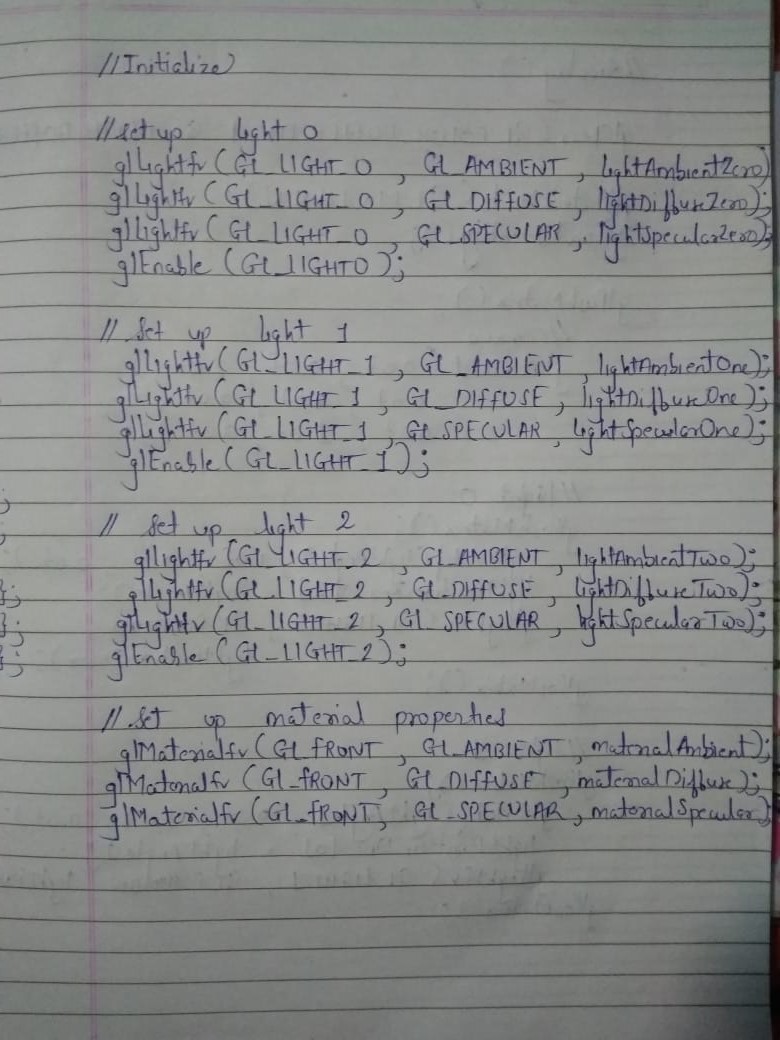 //Initialize
//set up light 0
glLightfv (GL_LIGHT_0 , GL_AMBIENT , lightAmbientZero)
glLightfv (GL_LIGHT_0 , GL_DIFFUSE , lightDiffuseZero);
glLightfv (GL_LIGHT_0 , GL_SPECULAR , lightSpecularZero);
glEnable (GL_LIGHT0);
// Set up light 1
glLightfv (GL_LIGHT_1 , GL_AMBIENT , lightAmbientOne);
glLightfv (GL_LIGHT_1 , GL_DIFFUSE , lightDiffuseOne);
glLightfv (GL_LIGHT_1 , GL_SPECULAR , lightSpecularOne);
glEnable (GL_LIGHT_1);
;
// Set up light 2
;
glLightfv (GL_LIGHT_2 , GL_AMBIENT , lightAmbientTwo);
};
glLightfv (GL_LIGHT_2 , GL_DIFFUSE , lightDiffuseTwo);
};
glLightfv (GL_LIGHT_2 , GL_SPECULAR , lightSpecularTwo);
};
glEnable (GL_LIGHT_2);
// Set up material properties
glMaterialfv (GL_FRONT , GL_AMBIENT , materialAmbient);
glMaterialfv (GL_FRONT , GL_DIFFUSE , materialDiffuse);
glMaterialfv (GL_FRONT, GL_SPECULAR , materialSpecular)